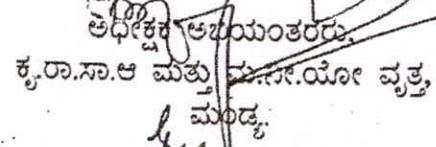 ಅಧೀಕ್ಷಕ ಅಭಿಯಂತರರು,
ಕೃ.ರಾ.ಸಾ.ಆ ಮತ್ತು ಮ.ನೀ.ಯೋ ವೃತ್ತ,
ಮಂಡ್ಯ.